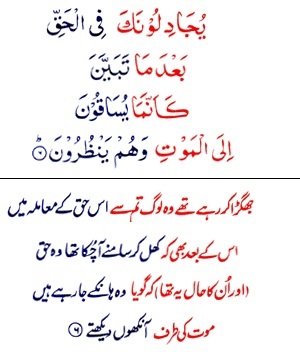 يُجَادِلُوْنَكَ فِى الْحَقِّ
بَعْدَ مَا تَبَيَّنَ
كَاَنَّمَا يُسَاقُوْنَ
اِلَى الْمَوْتِ وَهُمْ يَنْظُرُوْنَ ؕ‏ ۝۶
جھگڑا کر رہے تھے وہ لوگ تم سے اس حق کے معاملہ میں
اس کے بعد بھی کہ کھل کر سامنے آچُکا تھا وہ حق
(اور اُن کا حال یہ تھا) کہ گویا وہ ہانکے جا رہے ہیں
موت کی طرف آنکھوں دیکھتے ۝۶